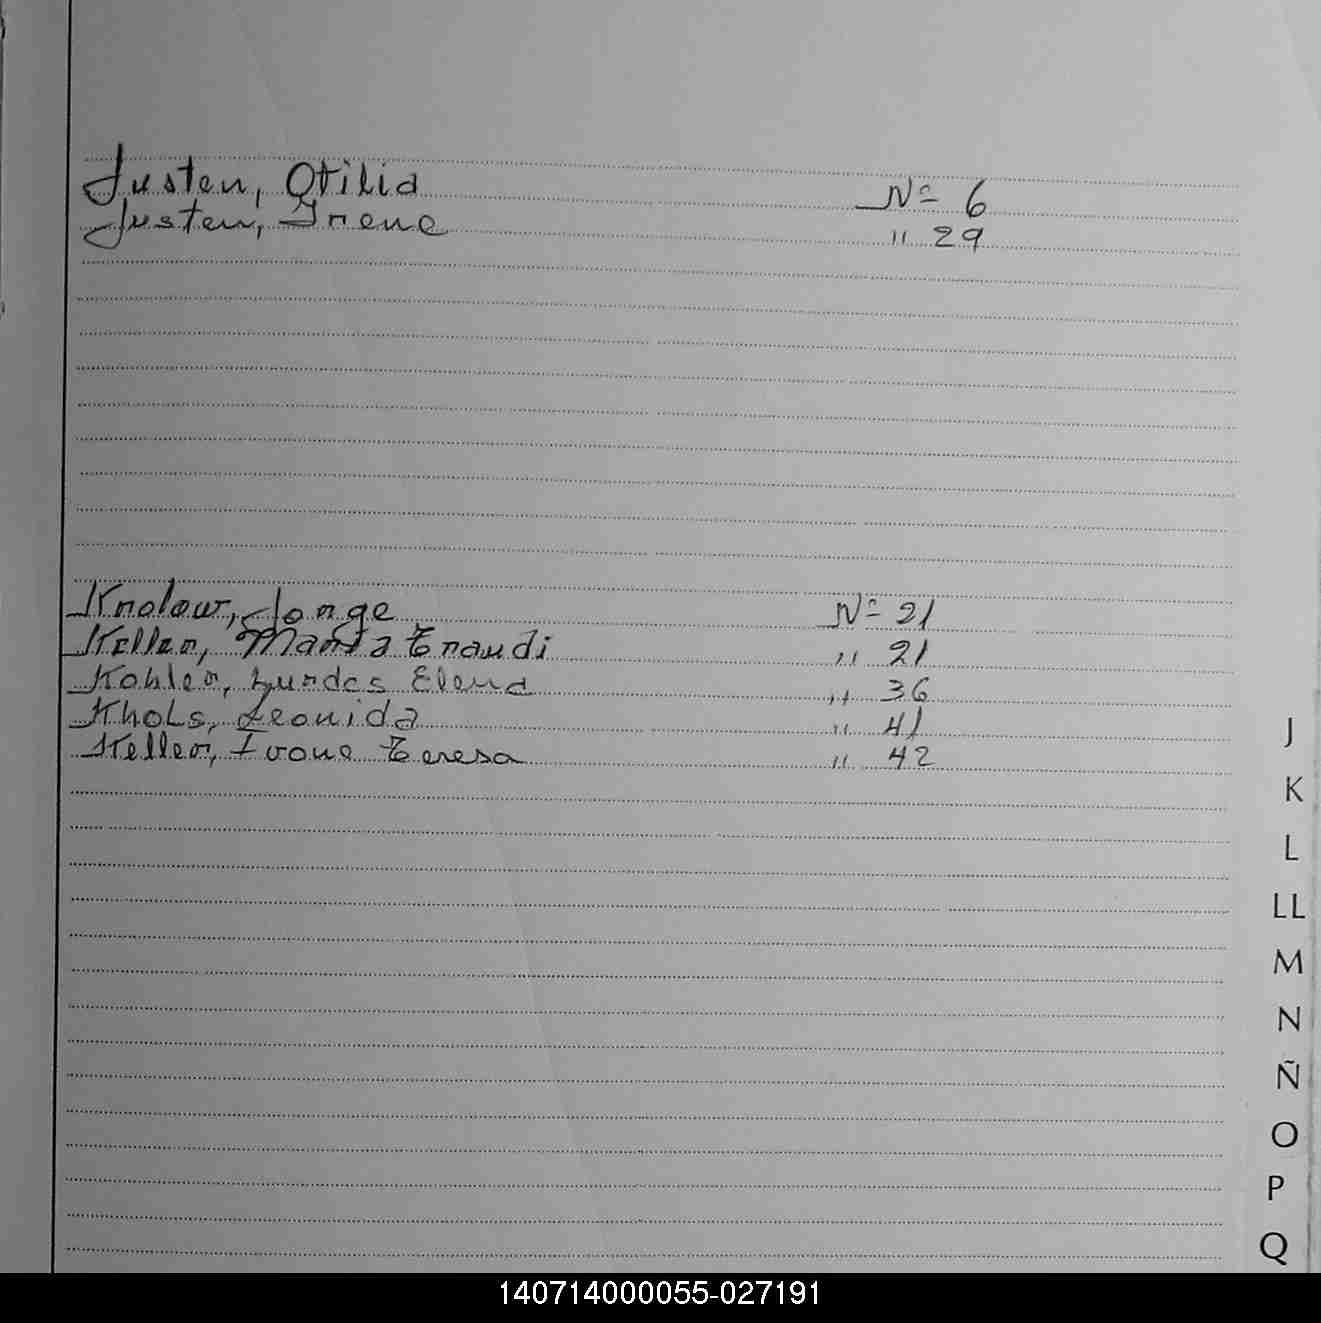 Justen, Otilia N= 6
Justen, Irene " 29
Knolow, Jorge N= 21
Keller, Maria Eraudi " 21
Kohler, Lurdes Elena " 36
Khols, Leonida " 41
Keller, Ivone Teresa " 42
J
K
L
LL
M
N
Ñ
O
P
Q
140714000055-027191